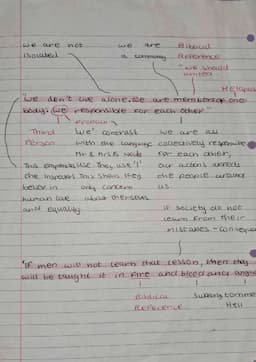 we are not isolated
we are a community
Biblical Reference
"we should united
"We don't live alone. We are members of one
body. We responsible for each other"
pronoun
Third Person
'We' contrast with the language Mr & Mrs B
They use 'I'
This shows they only concern about themselves
we are all collectively responsible for each other,
our actions affects the people around us
This emphasises the
believe in human law and equality
if society do not learn from their mistakes -
"If men will not learn that lesson, then they
will be taught it in fire and blood and
Biblical Reference
Hell